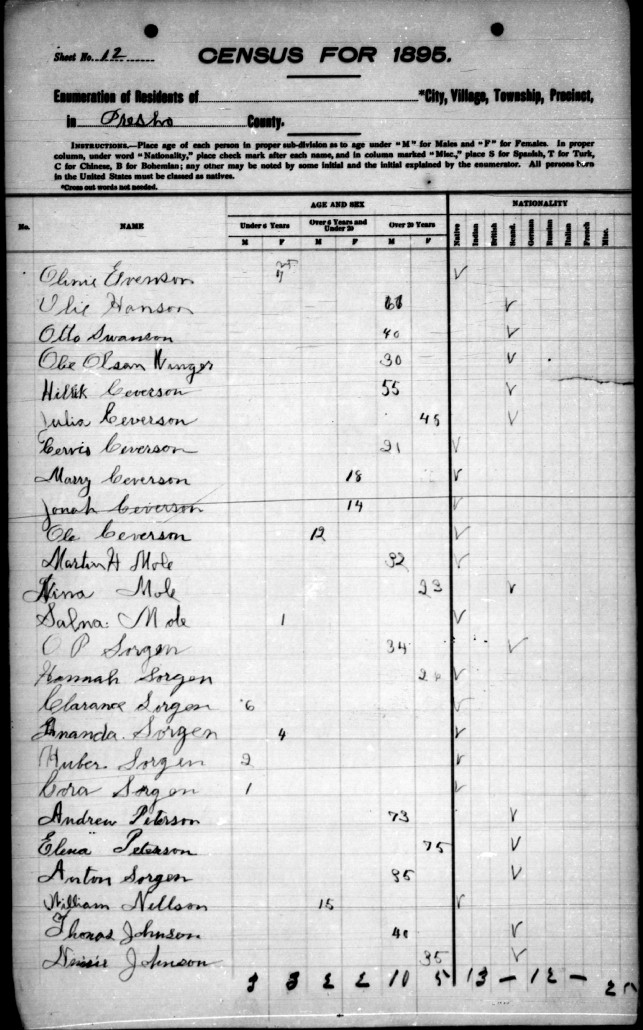 Sheet No. 12
CENSUS FOR 1895.
Enumeration of Residents of *City, Village, Township, Precinct,
in Presho County.
INSTRUCTIONS.—Place age of each person in proper sub-division as to age under "M" for Males and "F" for Females. In proper
column, under word "Nationality," place check mark after each name, and in column marked "Misc," place S for Spanish, T for Turk,
C for Chinese, B for Bohemian; any other may be noted by some initial and the initial explained by the enumerator. All persons born
in the United States must be classed as natives.
*Cross out words not needed.
No. NAME AGE AND SEX NATIONALITY
Under 6 Years Over 6 Years and Under 20 Over 20 Years
M F M F M F Native Indian British Scand. German Russian Italian French Misc.
Evenson √
Hanson √
Otto Swanson 40 √
Ole Olson Winger 30 √
Ceverson 55 √
Julia Ceverson 45 √
Ceverson 21 √
Marry Ceverson 18 √
Jonah Ceverson 14 √
Ole Ceverson 12 √
Martin H Mole 32 √
Nina Mole 23 √
Salna Mole 1 √
O P Sorgen 34 √
Hannah Sorgen √
Clarance Sorgen 6 √
Amanda Sorgen 4 √
Huber Sorgen 2 √
Cora Sorgen 1 √
Andrew Peterson 73 √
Elena Peterson 75 √
Anton Sorgen 35 √
William Nellson 15 √
Thomas Johnson 40 √
Johnson 35 √
3 3 2 2 10 5 13 – 12 – 25